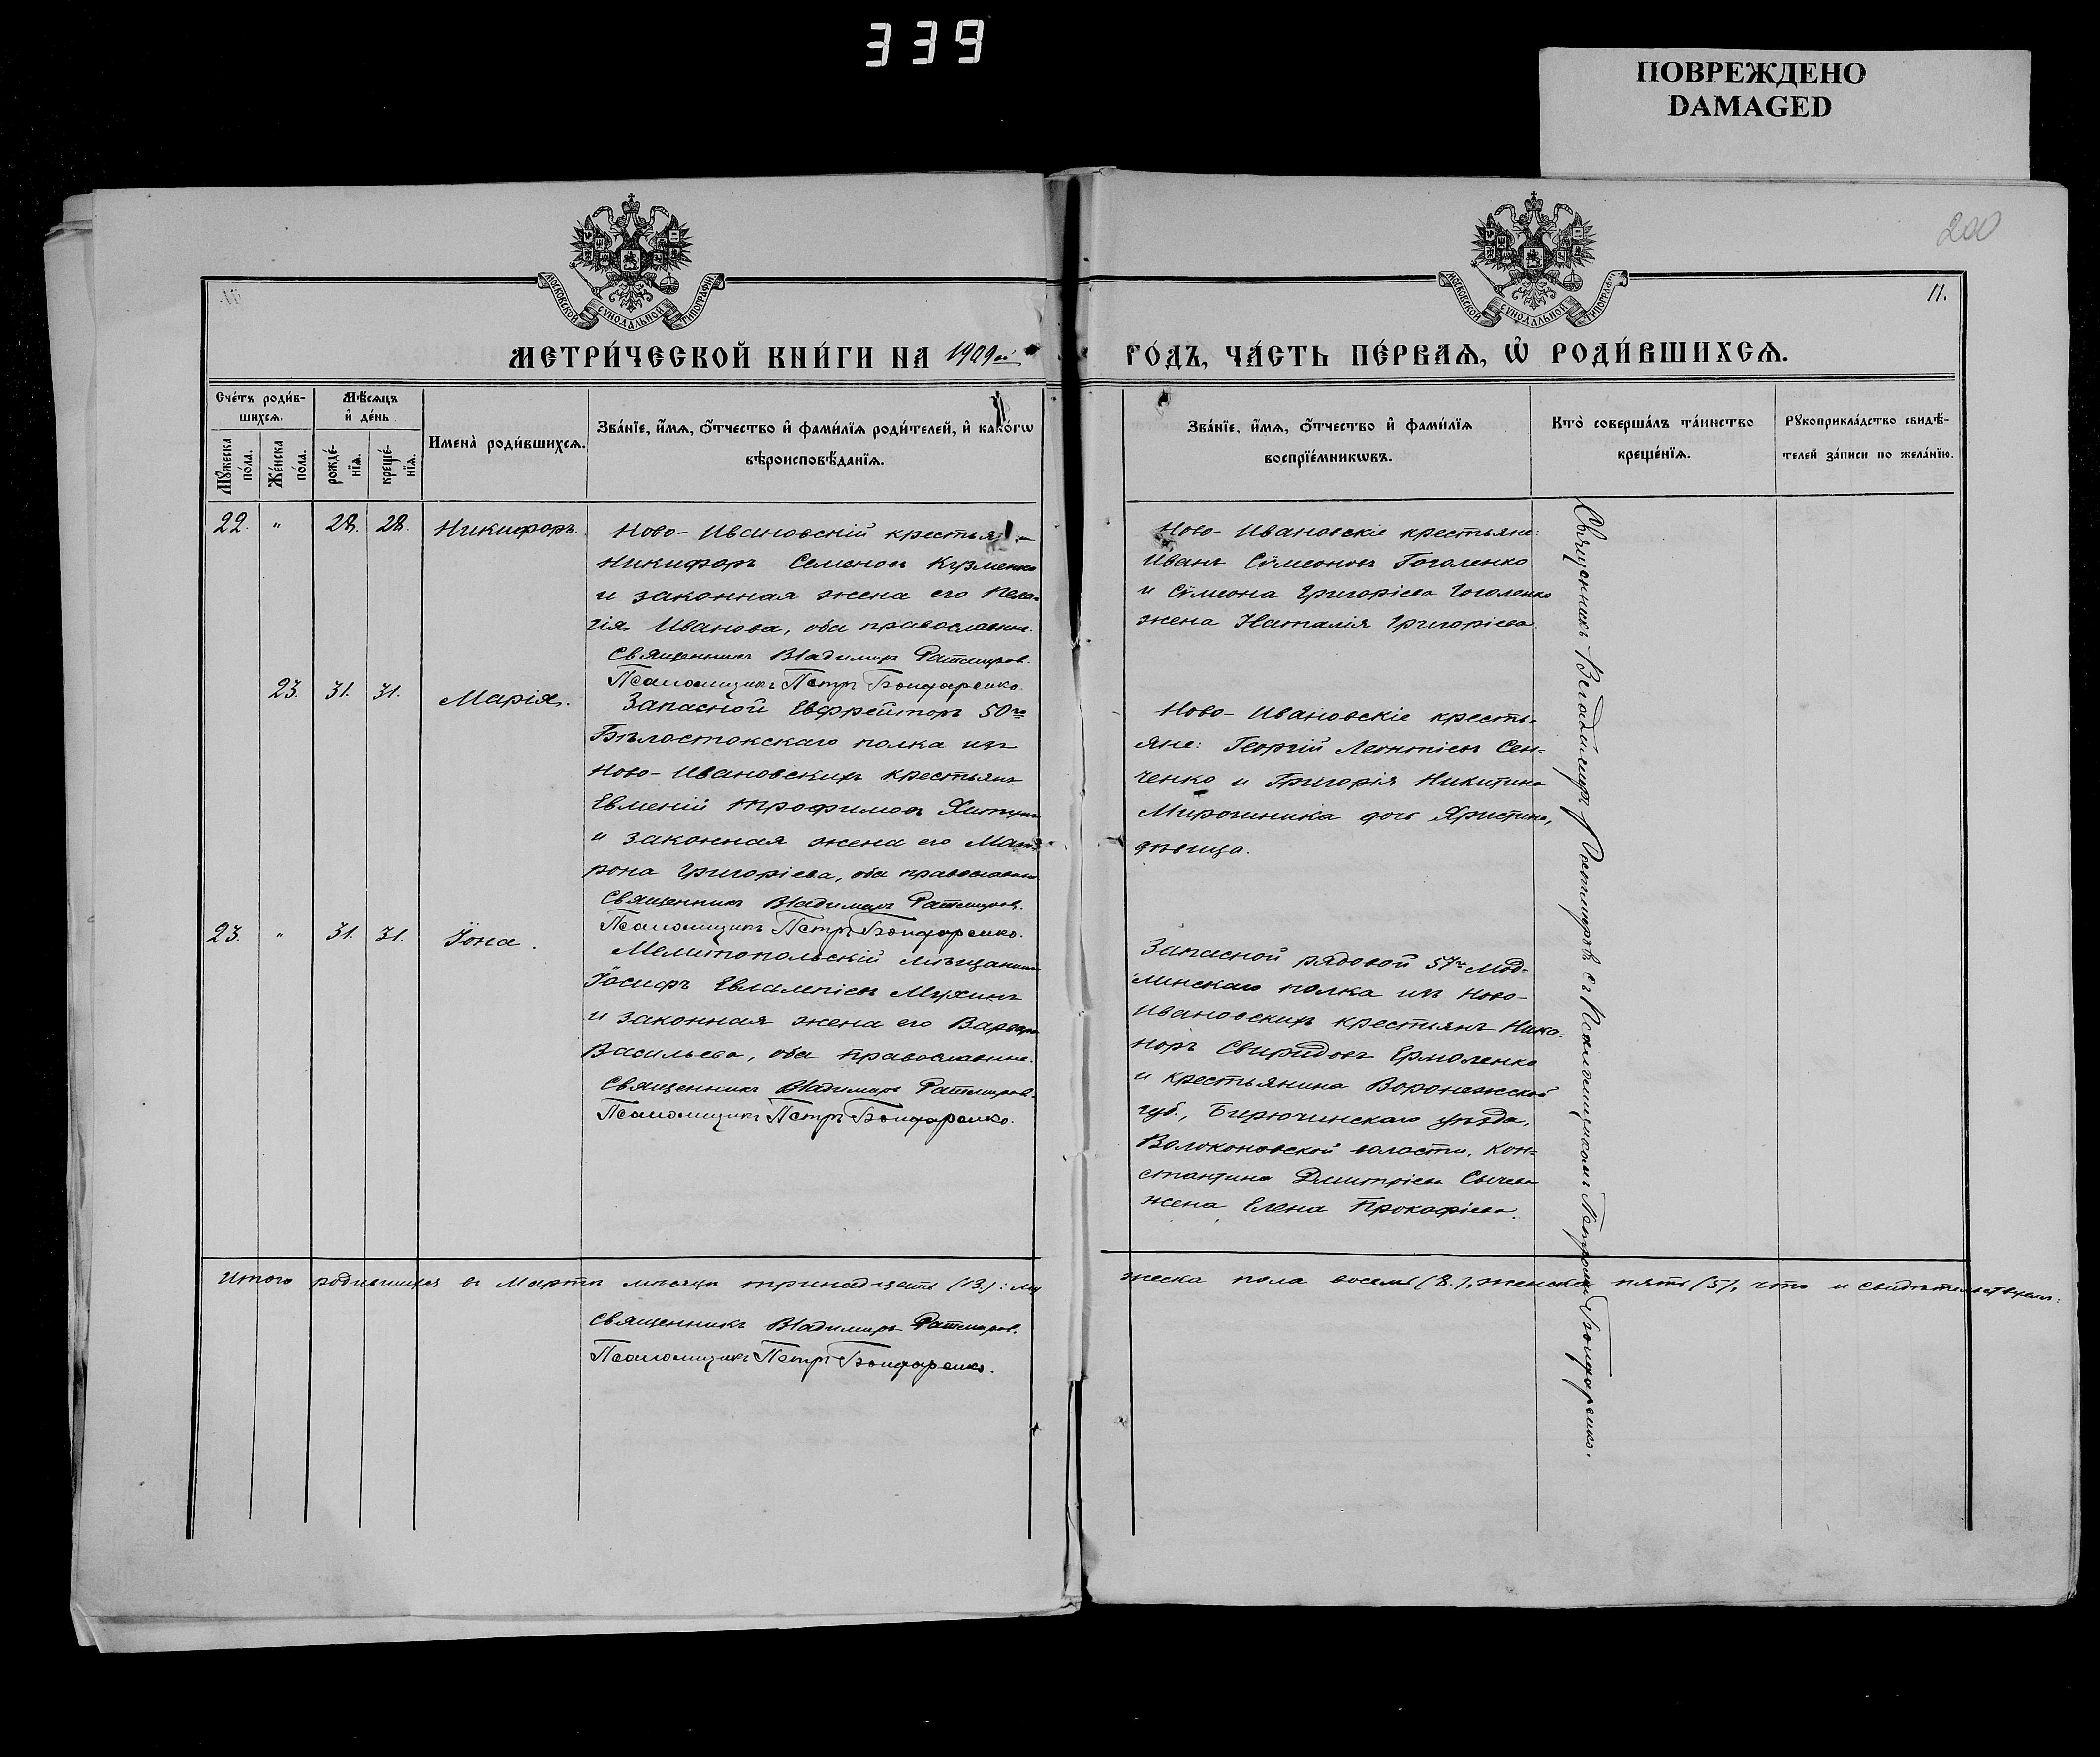 339
ПОВРЕЖДЕНО
DAMAGED
200
11.
МОСКОВСКОЙ СѴНОДАЛЬНОЙ ТИПОГРАФІИ
МОСКОВСКОЙ СѴНОДАЛЬНОЙ ТИПОГРАФІИ
МЕТРИ́ЧЕСКОЙ КНИ́ГИ НА 1909ый
ГО́ДЪ, ЧА́СТЬ ПЕ́РВАѦ, Ѡ҆ РОДИ́ВШИХСѦ.
Сче́тъ роди́в-
шихсѧ.
Мѣ́сѧцъ
и҆ де́нь
Мꙋ́жеска по́ла.
Же́нска по́ла.
рожде́-нїѧ.
креще́-нїѧ.
Имена̀ роди́вшихсѧ.
Зва́нїе, и҆́мѧ, ѻ҆́тчество и҆ фами́лїѧ роди́телей, и҆ како́гѡ
вѣроисповѣ́данїѧ.
Зва́нїе, и҆́мѧ, ѻ҆́тчество и҆ фами́лїѧ
воспрїе́мникѡвъ.
Кто̀ соверша́лъ та́инство
креще́нїѧ.
Рꙋкоприкла́дство свидѣ́-
телей за́писи по жела́нїю.
22. " 28. 28. Никифоръ.
Ново-Ивановскій крестья
Никифоръ Семеновъ Кузменко
и законная жена его Пела-
гія Иванова, оба православные.
Священникъ Владимиръ Ратмировъ.
Псаломщикъ Петръ Бондаренко.
Ново-Ивановскіе крестьяне:
Иванъ Сѵмеоновъ Гоголенко
и Сѵмеона Григоріева Гоголенко
жена Наталія Григоріева.
23. 31. 31. Марія.
Запасной Ефрейторъ 50го
Бѣлостокскаго полка изъ
Ново-Ивановскихъ крестьянъ
Евменій Трофимовъ
и законная жена его Мат-
рона Григоріева, оба православные
Священникъ Владимиръ Ратмировъ.
Псаломщикъ Петръ Бондаренко.
Ново-Ивановскіе кресть-
яне: Георгій Леонтіевъ Сен-
ченко и Григорія Никитина
Мирошника дочь Христина,
дѣвица.
23. " 31. 31. Іона.
Мелитопольскій мѣщанинъ
Іосифъ Евлампіевъ Мухинъ
и законная жена его Варвара
Васильева, оба православные.
Священникъ Владимиръ Ратмировъ.
Псаломщикъ Петръ Бондаренко.
Запасной рядовой 57го Мод-
линскаго полка изъ Ново-
Ивановскихъ крестьянъ Ника-
норъ Свиридовъ Ермоленко
и крестьянина Воронежской
губ., Бирючинскаго уѣзда,
Волоконовской волости, Кон-
стантина Дмитріева Сычева
жена Елена Прокофіева.
Священникъ Владимиръ Ратмировъ съ Псаломщикомъ Петромъ Бондаренко.
Итого родившихся въ Мартѣ мѣсяцѣ тринадцать (13.): му
жеска пола восемь (8.), женска пять (5), что и свидѣтельствуемъ:
Священникъ Владимиръ Ратмировъ.
Псаломщикъ Петръ Бондаренко.